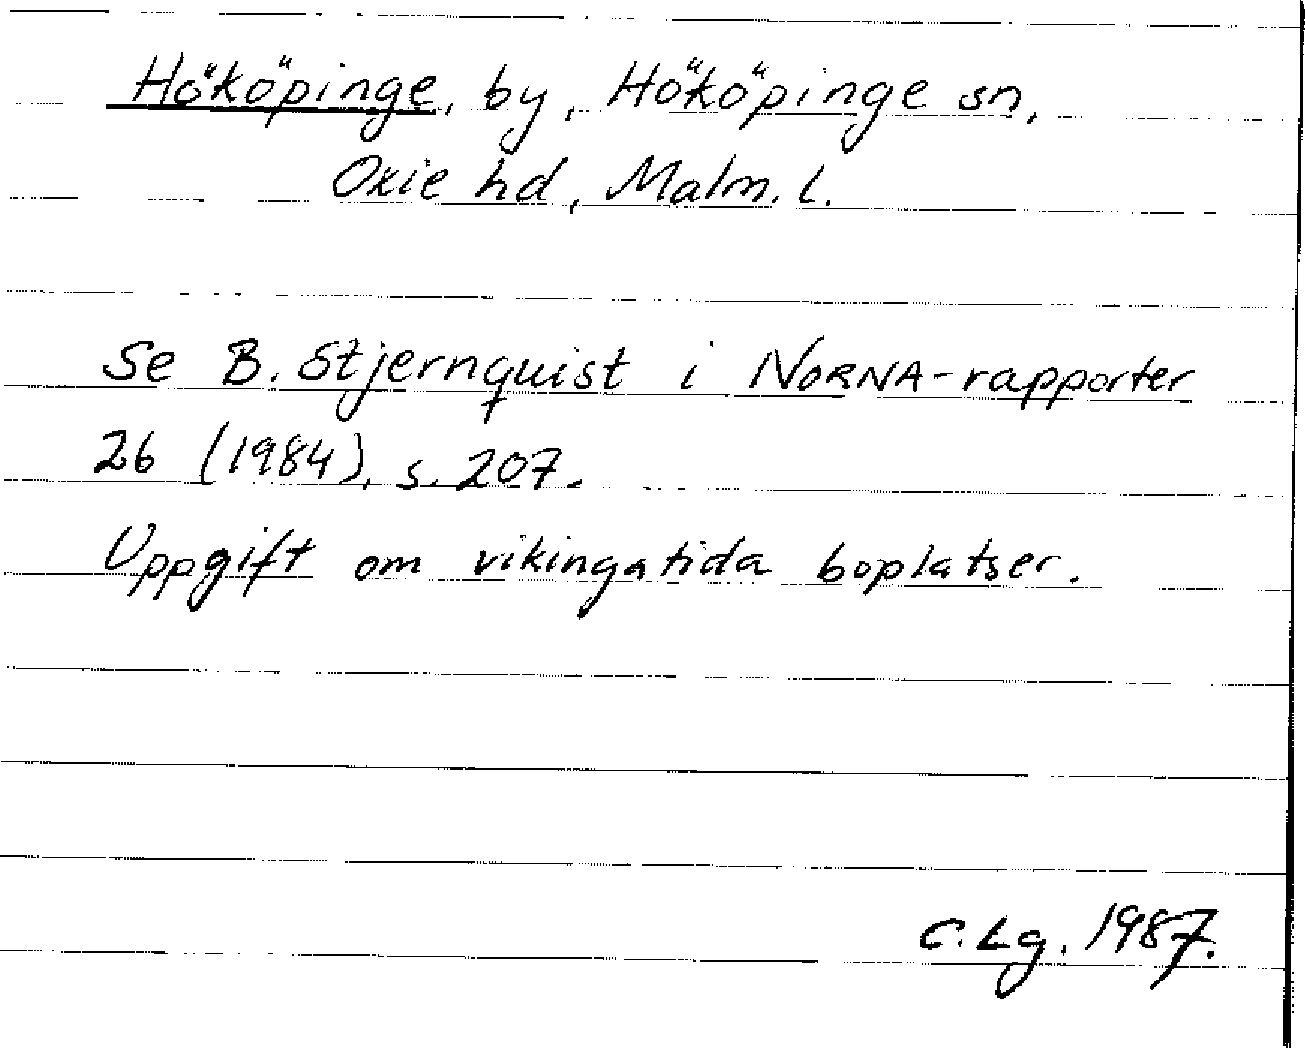 Hököpinge, by, Hököpinge sn,
Oxie hd, Malm. l.
Se B. Stjernquist i NORNA-rapporter
26 (1984), s. 207.
Uppgift om vikingatida boplatser.
C. Lg. 1987.